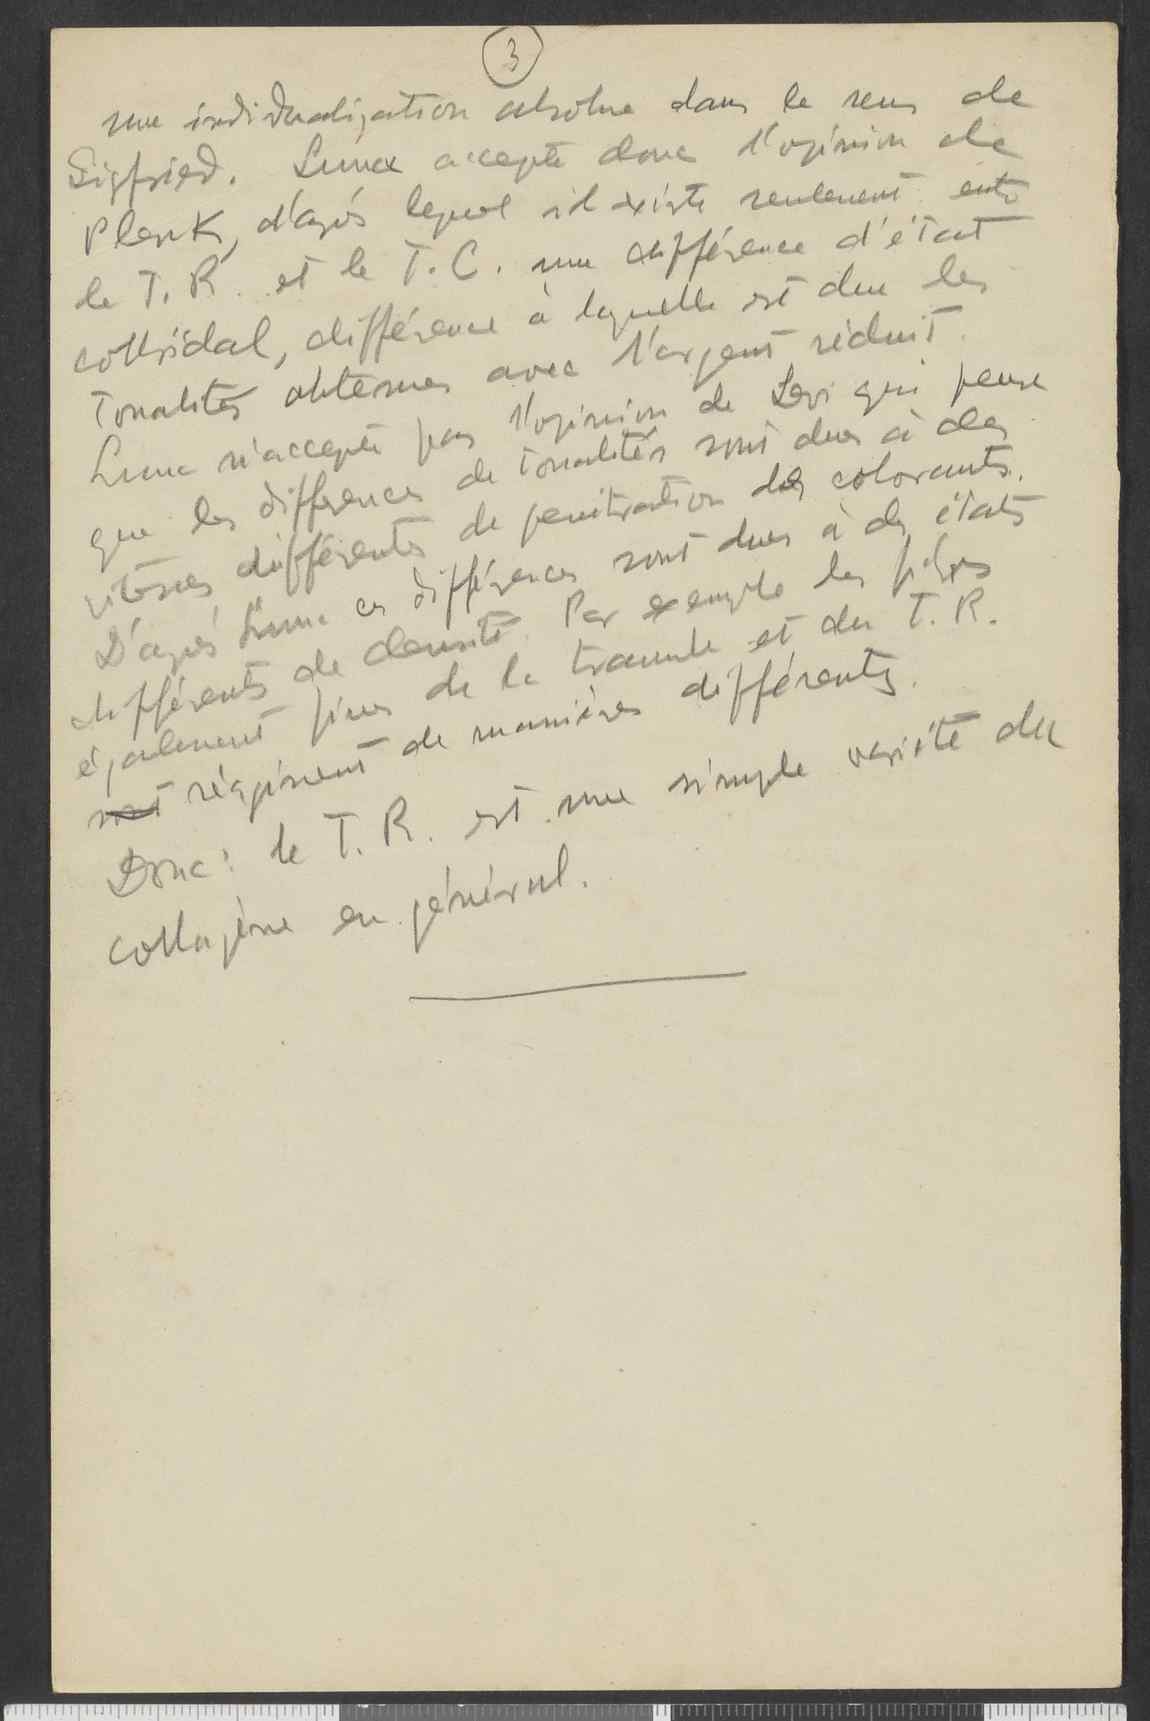 3
une individualization absolue dans le sens de
Sigfried. Luna accepte donc l'opinion de
Plenk, d'après lequel il existe seulement entre
le T. R. et le T. C. une différence d'état
colloïdal, différence à laquelle est due les
tonalités obtenues avec l'argent réduit.
Luna n'accepte pas l'opinion de Levi qui pense
que les differences de tonalités sont dues à des
vitesses différentes de penetration des colorants.
D'après Luna ces différences sont dues à des états
différents de densité. Par exemple les fibres
également fines de la et du T. R.
sont réagissent de manières différentes.
Donc: le T. R. est une simple varieté du
collagène en général.